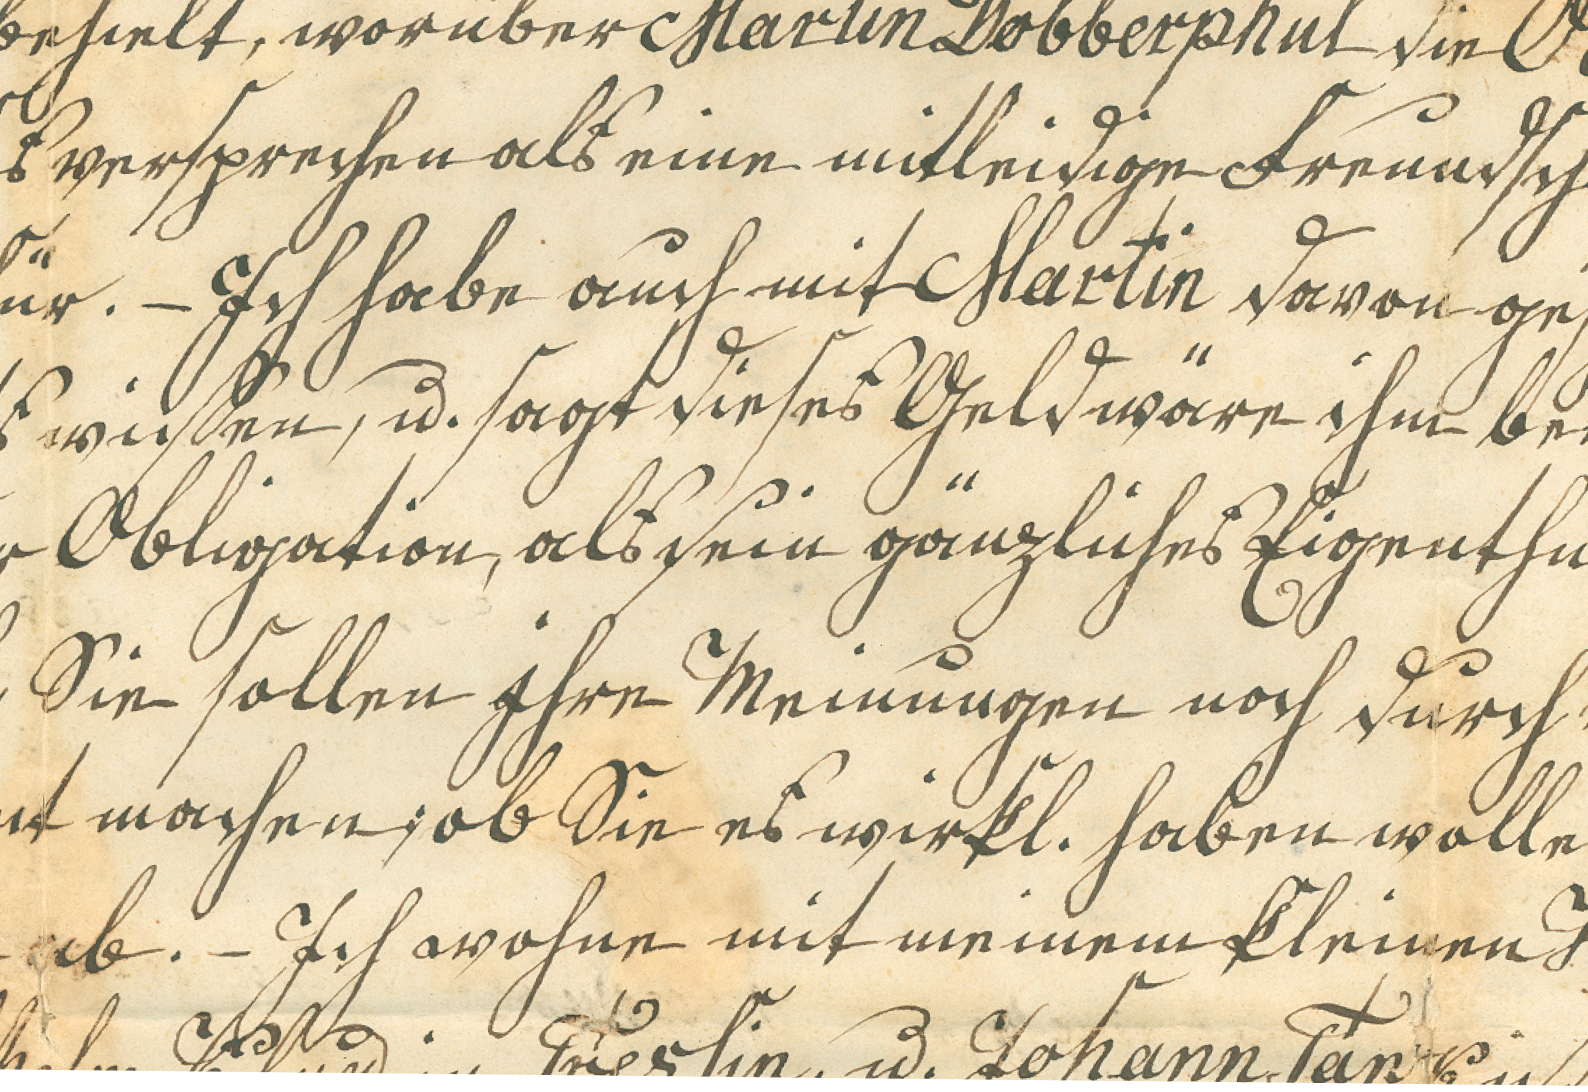 behielt, worüber Martin Dobberphul die
versprechen als eine mitleidige Freundsch
für. – Ich habe auch mit Martin davon ges
wissen, u. sagt dieses Geld wäre ihm bei
Obligation, als sein gänzliches Eigenthu
Sie sollen ihre Meinungen noch durch
machen, ob Sie es wirkl. haben wolle
ab. – Ich wohne mit meinem kleinen
in u. Johann